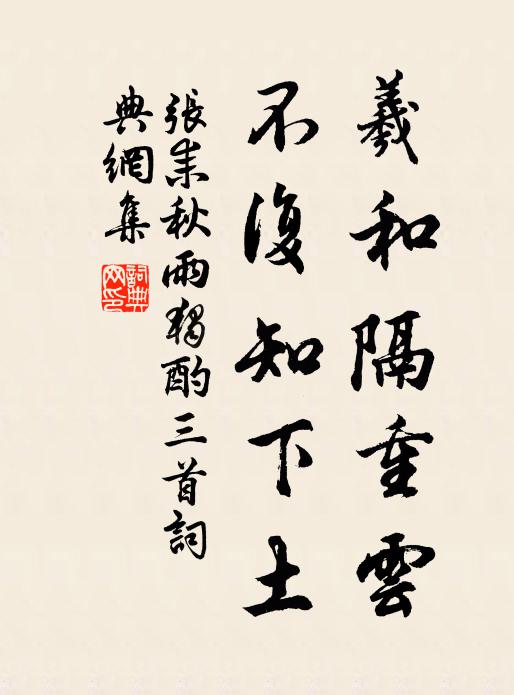 羲和隔重雲
不復知下土
張耒秋雨獨酌三首詞
典網集
詞典
网印